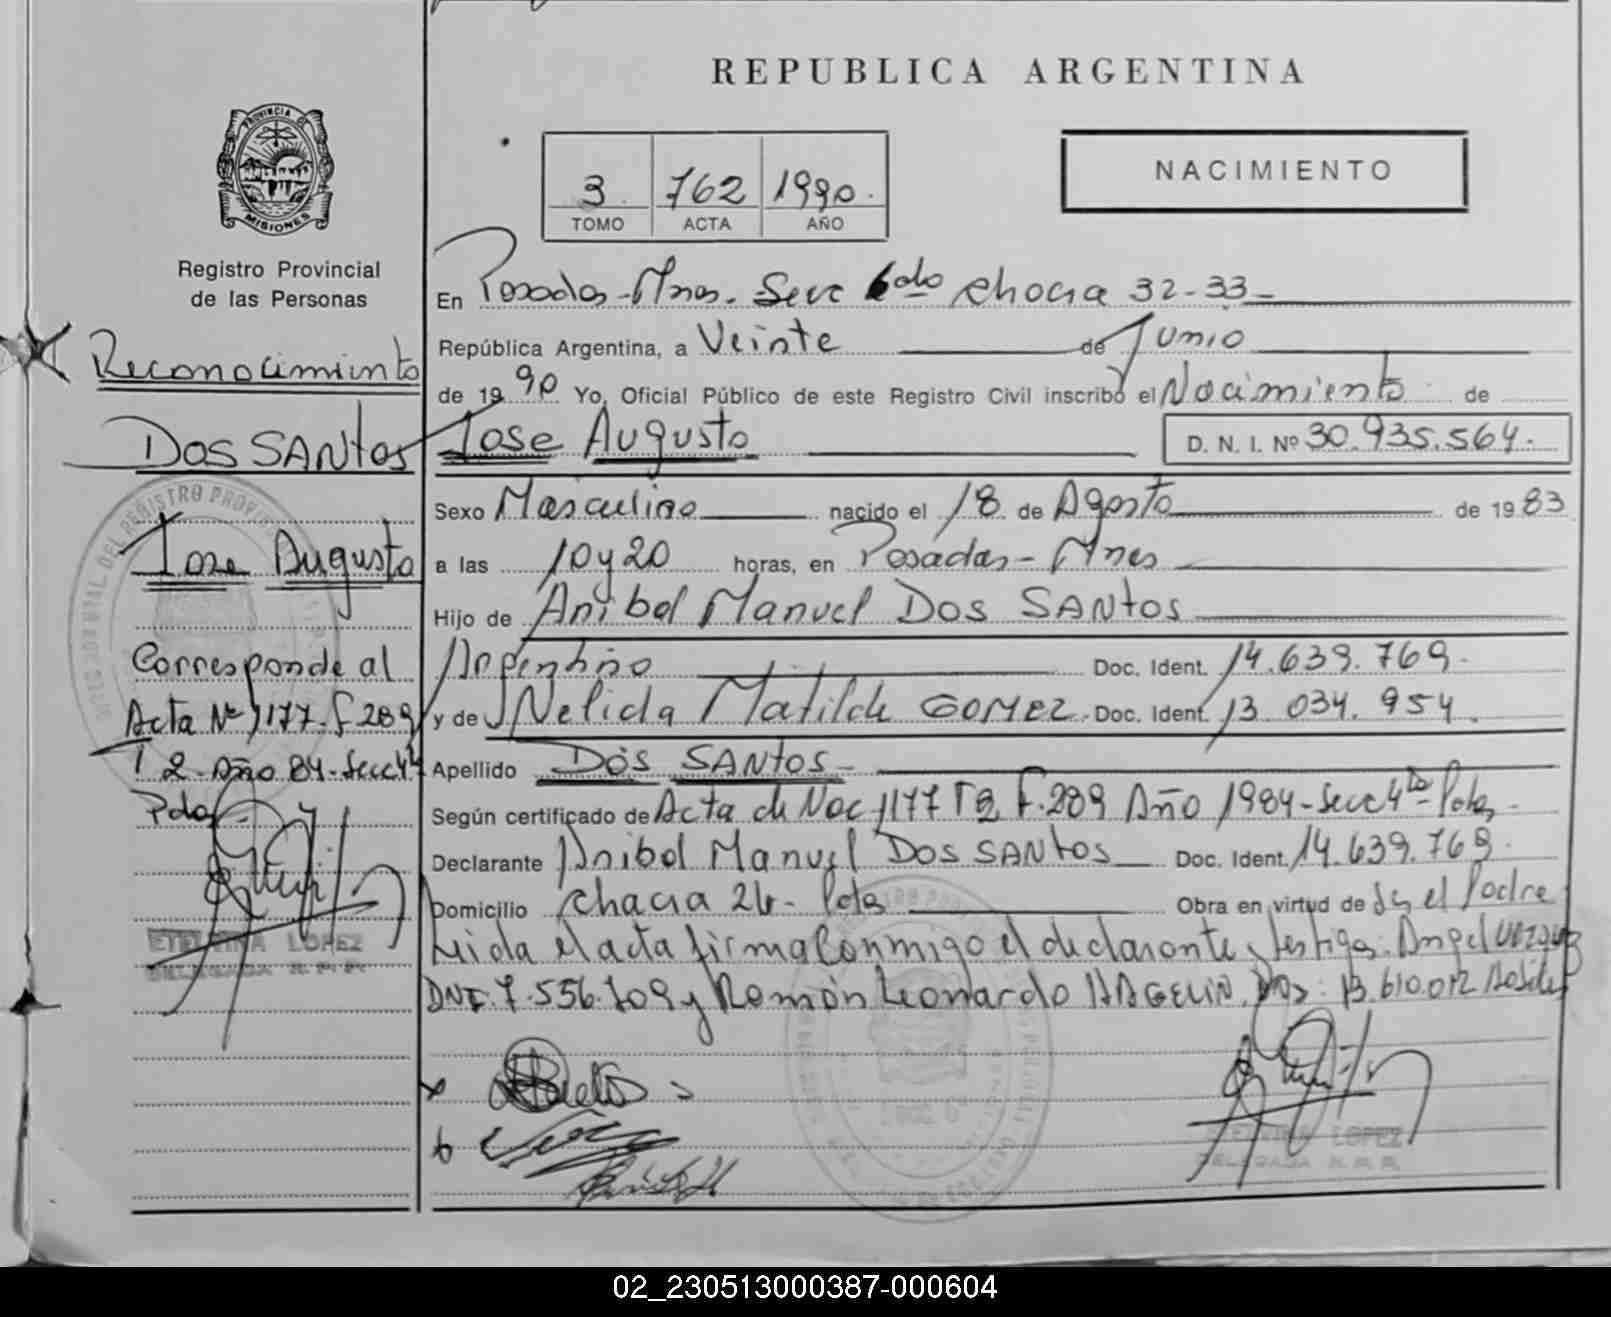 REPUBLICA ARGENTINA
PROVINCIA DE
MISIONES
Registro Provincial
de las Personas
3 762 1990
TOMO ACTA AÑO
NACIMIENTO
Reconocimiento
DOS SANtos
Jose Augusto
Corresponde al
Acta Nº 1177- F 289
T 2 - Año 84 - Secc 4ta
Pdas
ETELVINA LOPEZ
DELEGADA R. P. P.
En Posadas - Mnes. Secc 6do Chacra 32-33
República Argentina, a Veinte de Junio
de 1990 Yo, Oficial Público de este Registro Civil inscribo el Nacimiento de
Jose Augusto D. N. I. Nº 30.935.564.
Sexo Masculino nacido el 18 de Agosto de 1983
a las 10 y 20 horas, en Posadas - Mnes
Hijo de Anibal Manuel Dos SANtos
Argentino Doc. Ident. 14.639.769.
y de Nelida Matilde GOMEZ. Doc. Ident. 13 034. 954.
Apellido DOS SANtos
Según certificado de Acta de Nac 1177 T 2 F. 289 Año 1984 - Secc 4ta Pdas
Declarante Anibal Manuel Dos SANtos Doc. Ident. 14.639.769.
Domicilio Chacra 26 - Pdas Obra en virtud de Ser el Padre
Leida el acta firma Conmigo el declarante y testigos: Angel
DNI. 7.556.709 y Ramón Leonardo HAGELIN, 13.610.012
ETELVINA LOPEZ
DELEGADA R. P. P.
02_230513000387-000604